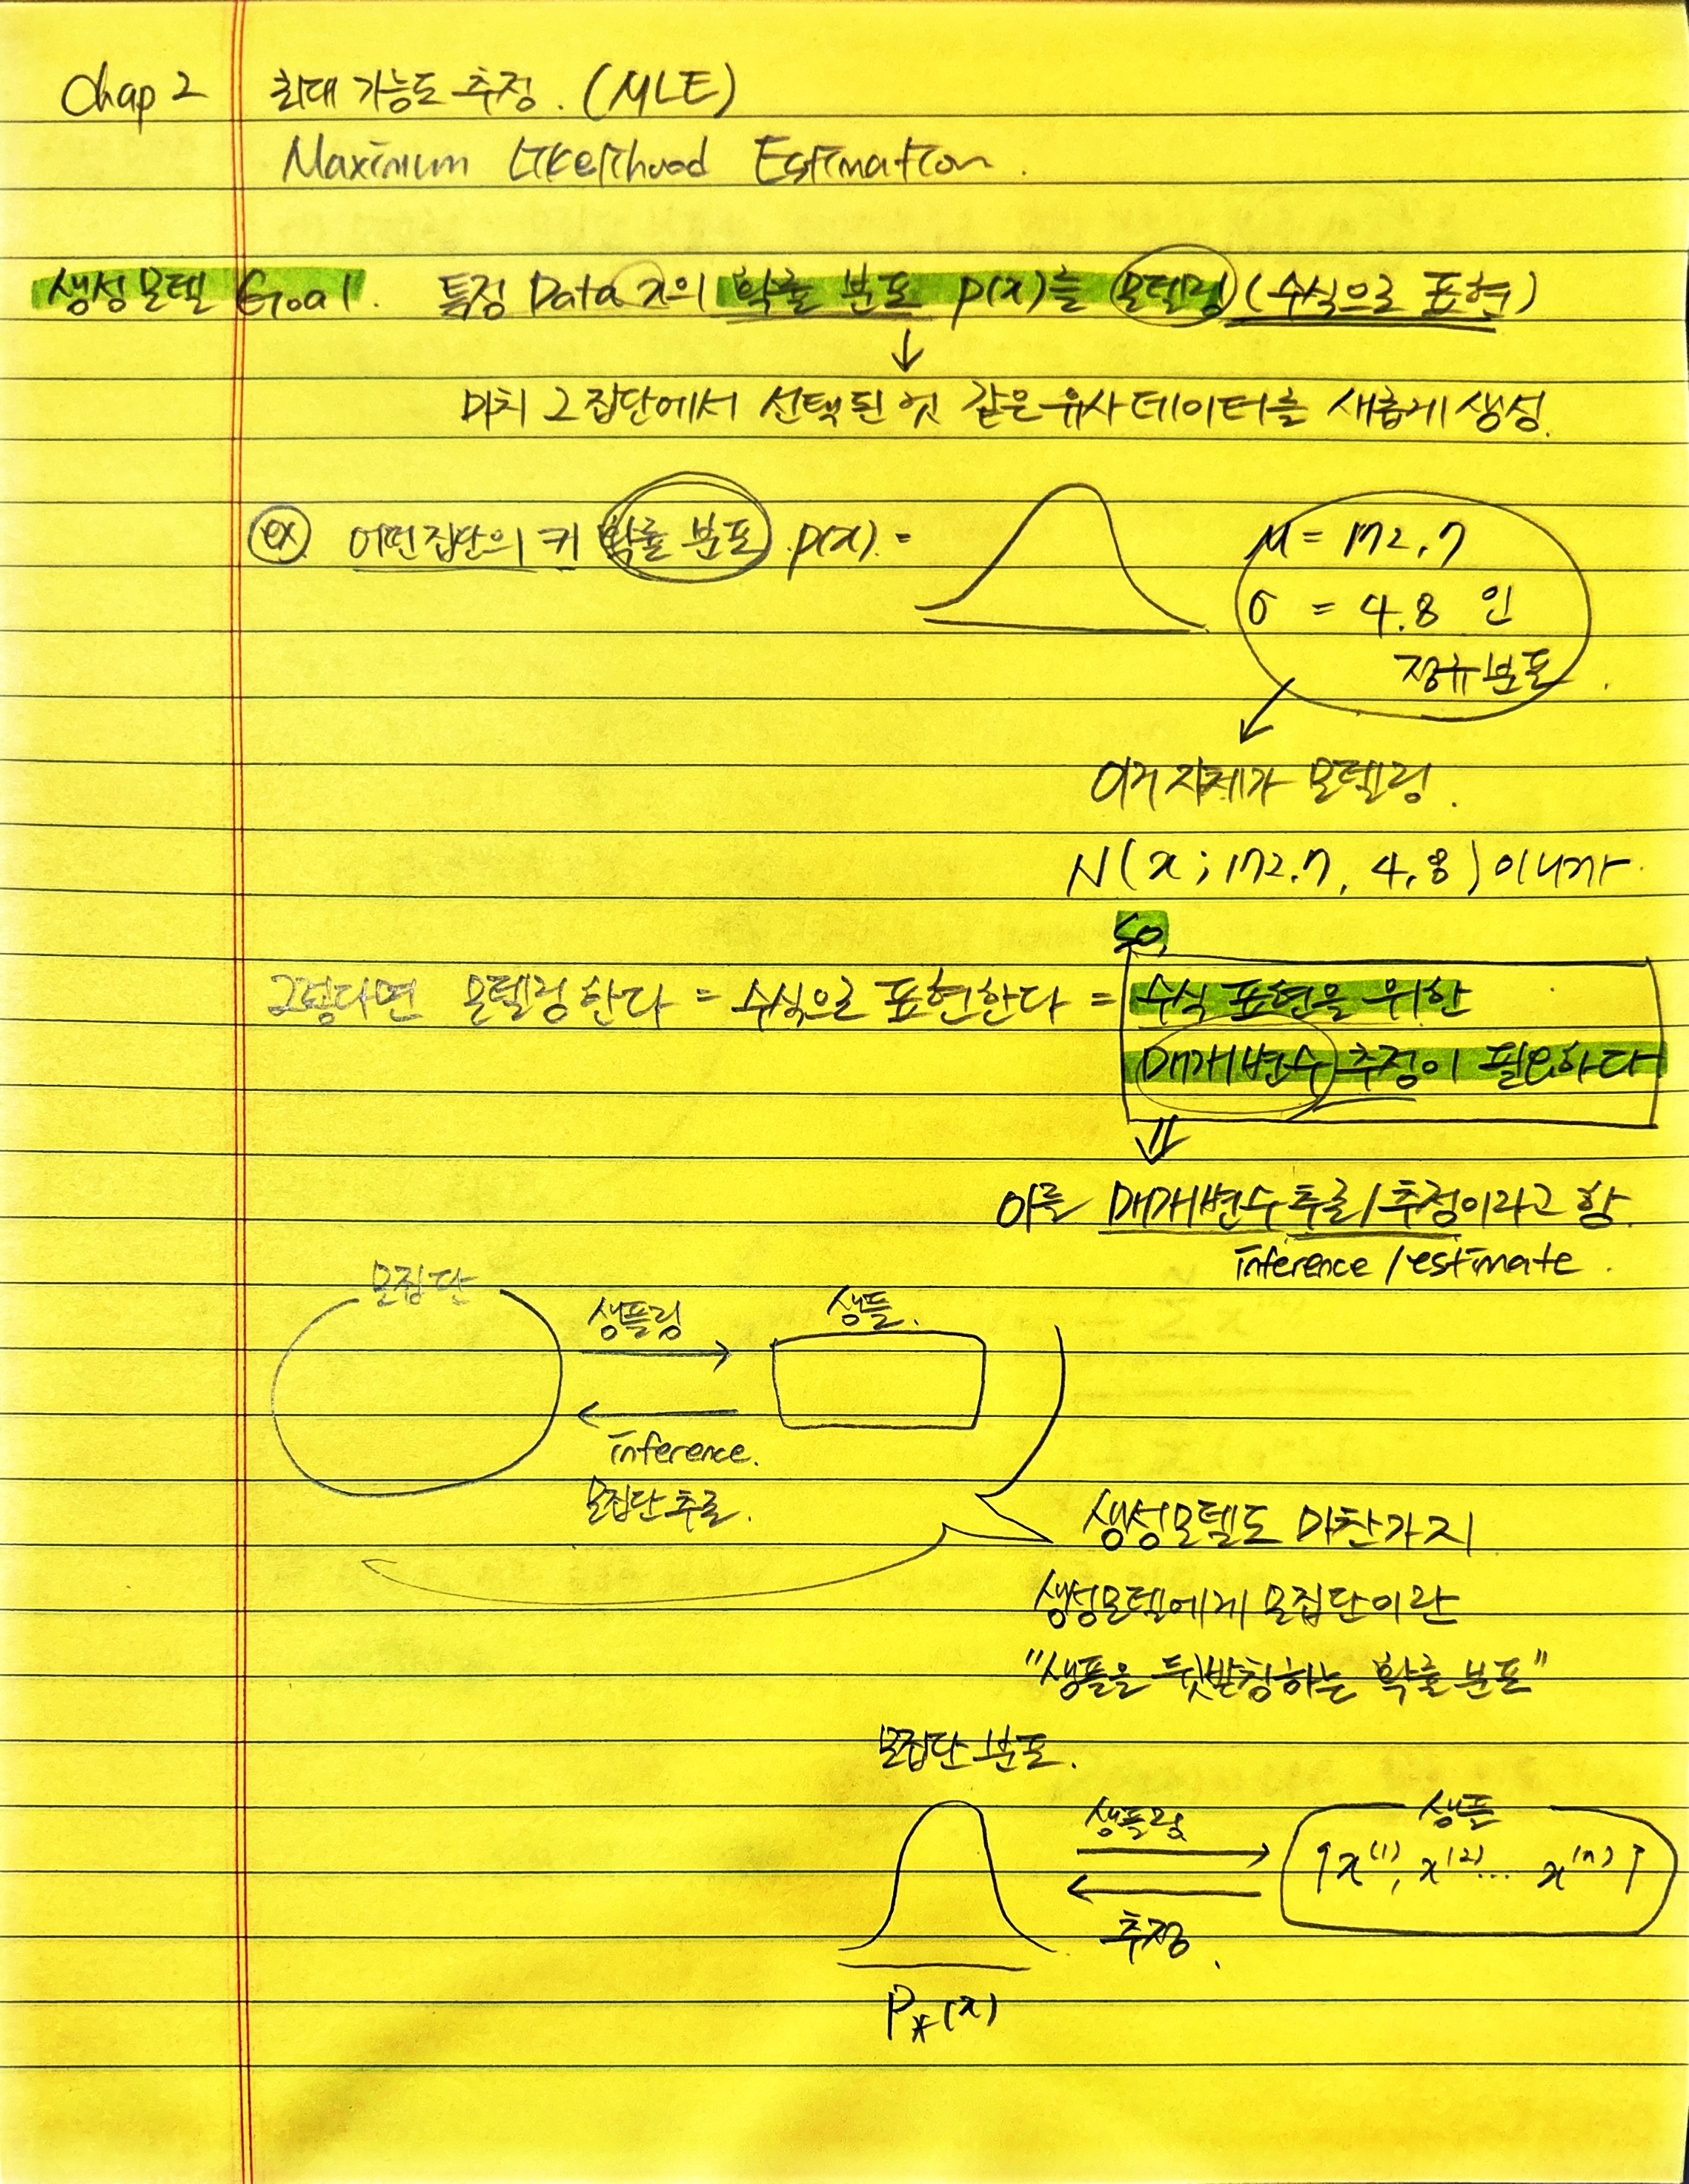 Chap 2 최대 가능도 추정. (MLE)
Maximum Likelihood Estimation.
생성 모델 Goal. 특정 Data x의 확률 분포 p(x)를 모델링 (수식으로 표현)
↓
마치 그 집단에서 선택된 것 같은 유사 데이터를 새롭게 생성.
ex 어떤 집단의 키 확률 분포 p(x) =
μ = 172.7
σ = 4.8 인
정규분포.
이거 자체가 모델링.
N(x ; 172.7, 4.8) 이니까
So,
그렇다면 모델링한다 = 수식으로 표현한다 = 수식 표현을 위한
매개변수 추정이 필요하다
⇓
이를 매개변수 추론/추정이라고 함.
inference / estimate.
모집단
샘플링 →
샘플.
← inference.
모집단 추론.
생성모델도 마찬가지
생성모델에게 모집단이란
"샘플을 뒷받침하는 확률 분포"
모집단 분포.
샘플링 →
샘플
{x⁽¹⁾, x⁽²⁾... x⁽ⁿ⁾}
← 추정.
P*(x)